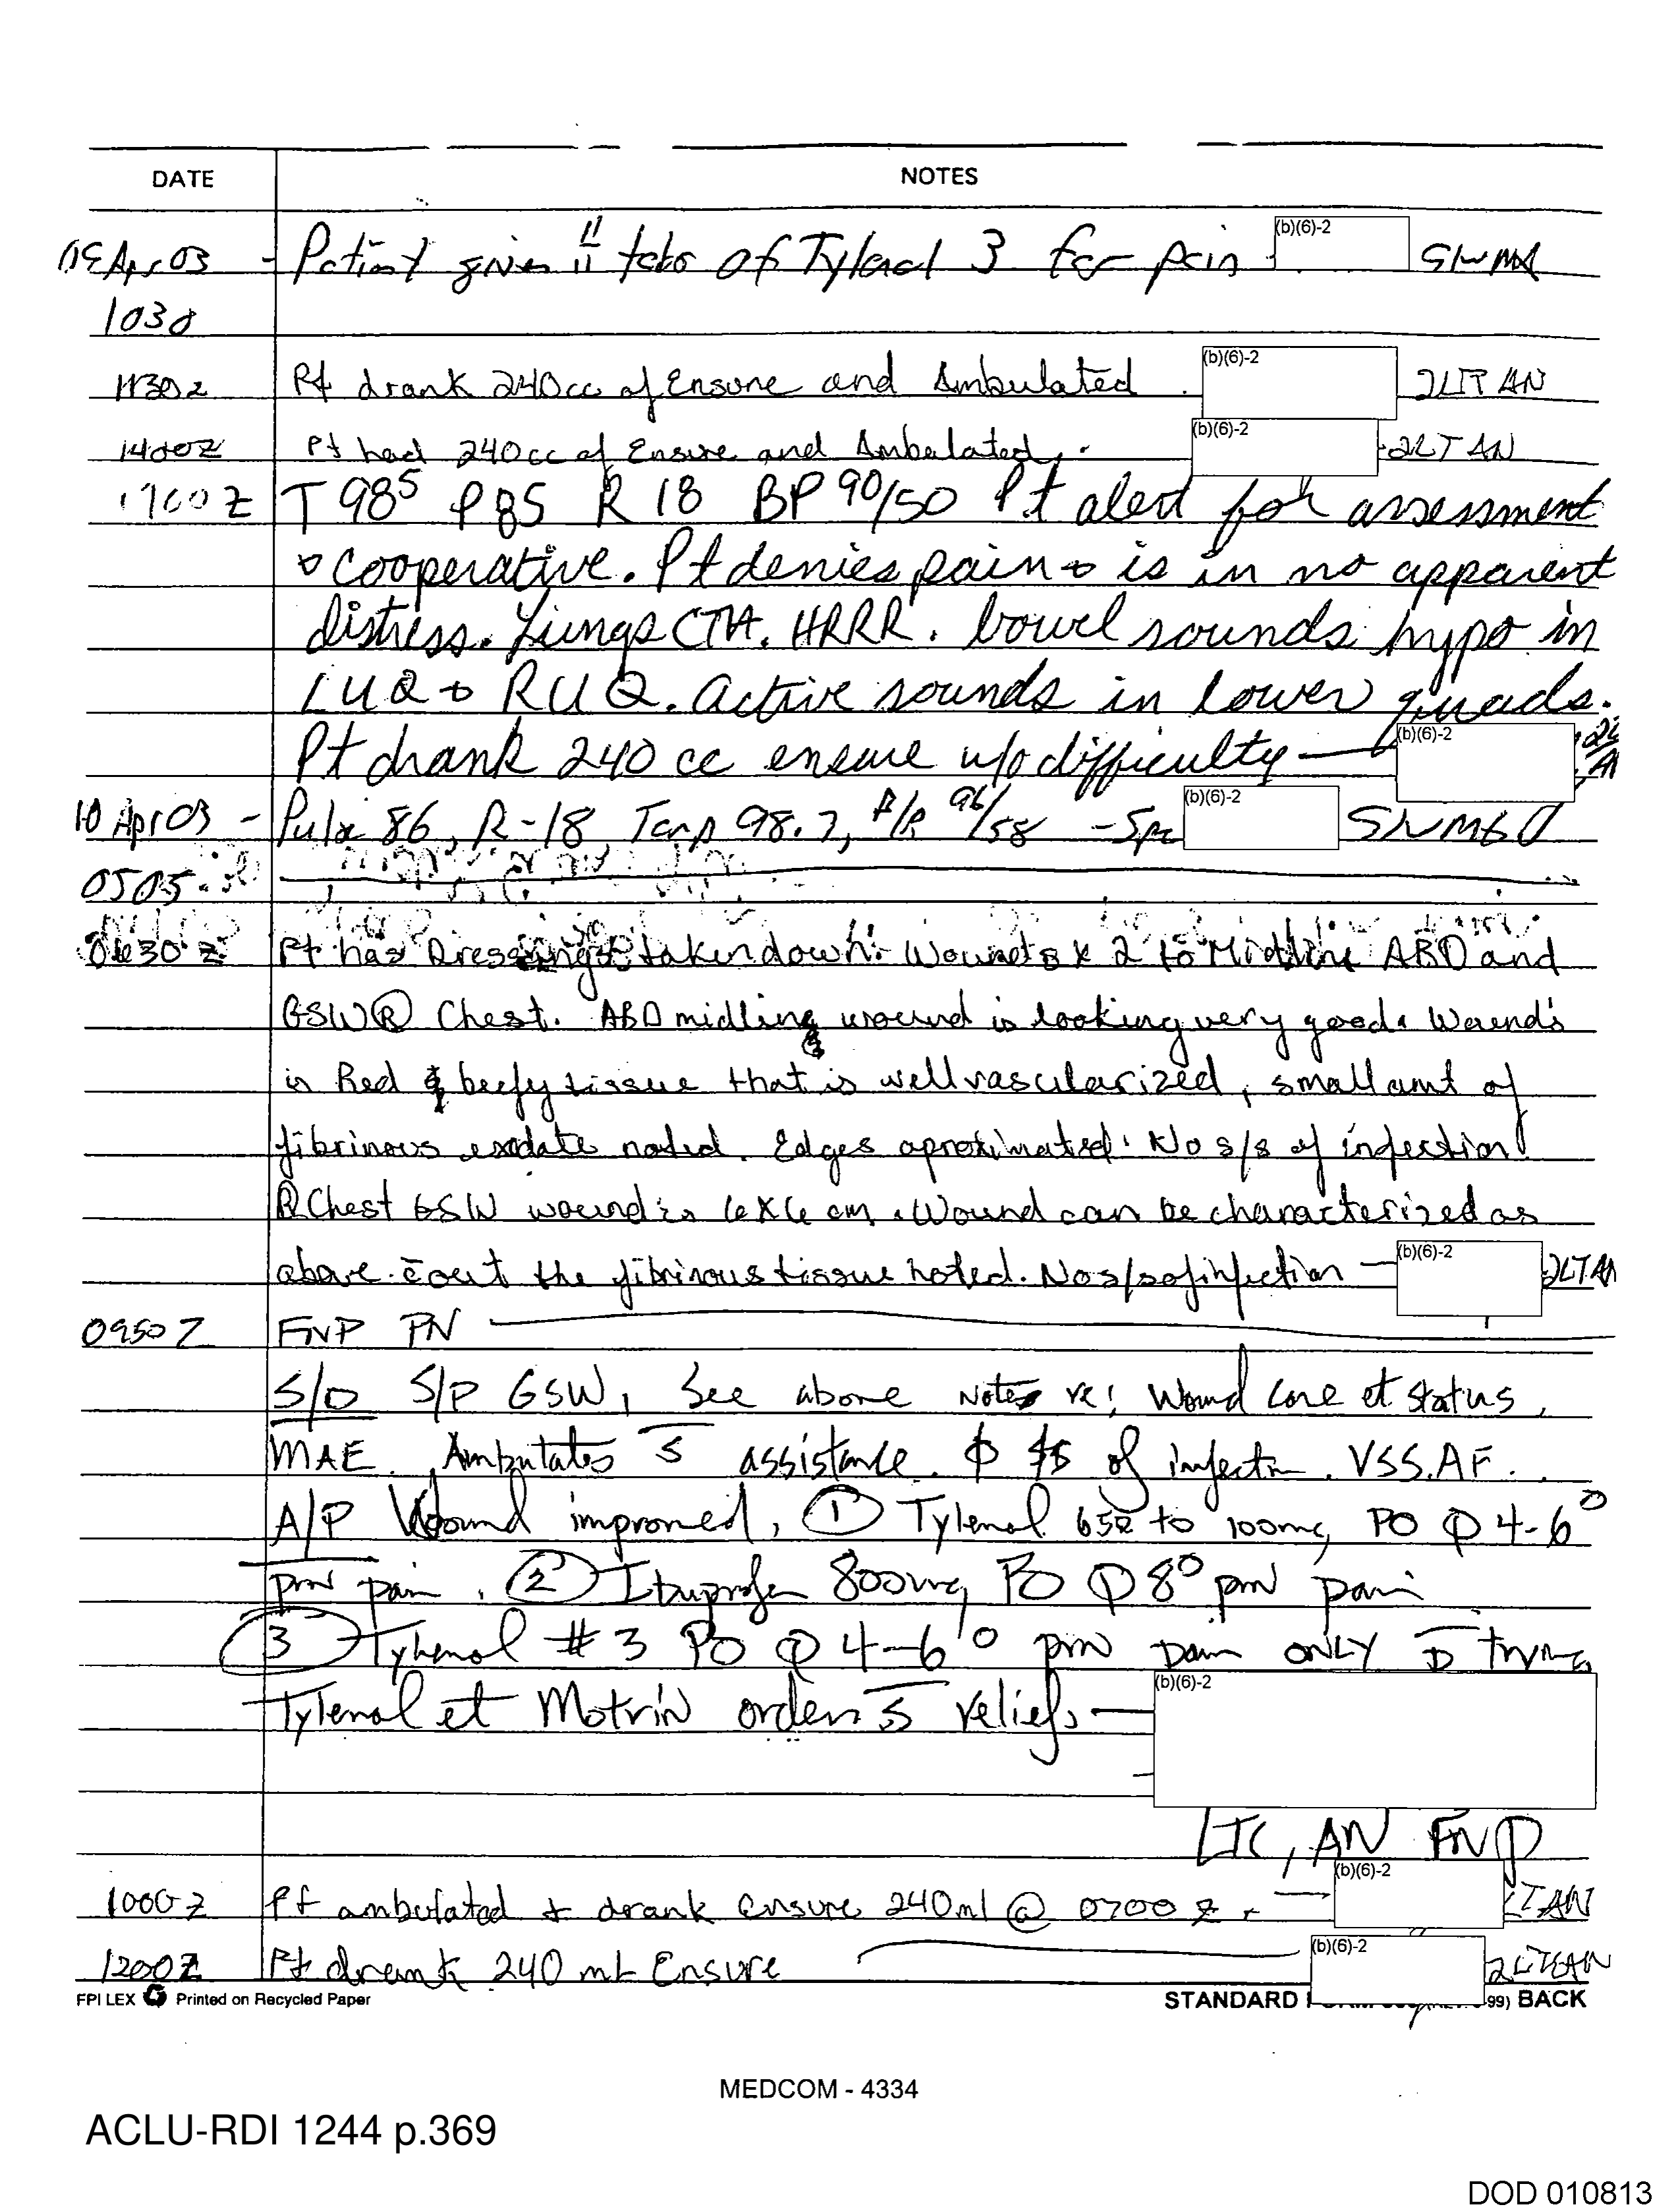 DATE NOTES
09 Apr 03 - Patient given II tabs of Tylenol 3 for pain (b)(6)-2
1030
1130z Pt drank 240cc of Ensure and Ambulated. (b)(6)-2 2LT AN
1400z Pt had 240cc of Ensure and Ambulated. (b)(6)-2 2LT AN
1700Z T 98⁵ P85 R 18 BP 90/50 Pt alert for assessment
& cooperative. Pt denies pain & is in no apparent
distress. Lungs CTA. HRRR. bowel sounds hypo in
LUQ & RUQ. Active sounds in lower quads.
Pt drank 240 cc ensure w/o difficulty — (b)(6)-2
10 Apr 03 - Pulse 86, R-18, Temp 98.7, B/P 96/58 - Spc (b)(6)-2
0505
0630z Pt has Dressings taken down. Wounds x 2 to Midline ABD and
GSW Ⓡ Chest. ABD midline wound is looking very good. Wounds
is Red & beefy tissue that is well vascularized, small amt of
fibrinous exdate noted. Edges aproximated. No s/s of infection
Ⓡ Chest GSW wound is 6x6 cm. Wound can be characterized as
above c̄out the fibrinous tissue noted. No s/s of infection — (b)(6)-2 2LT AN
0950Z FNP PN
S/O S/P GSW, See above notes re: Wound Care et status,
MAE. Ambutates s̄ assistance. ϕ s/s of infectn. VSS. AF.
A/P Wound improved, ① Tylenol 650 to 100mg PO Q 4-6°
prn pain. ② Ibuprofen 800mg PO Q 8° prn pain
③ Tylenol #3 PO Q 4-6° prn pain ONLY p̄ trying
Tylenol et Motrin orders s̄ relief. — (b)(6)-2
LTC, AN FNP
1000z Pt ambulated & drank ensure 240ml @ 0700z. — (b)(6)-2 LTAN
1200Z Pt drank 240 mL Ensure (b)(6)-2 2LT AN
FPI LEX Printed on Recycled Paper STANDARD 99) BACK
MEDCOM - 4334
ACLU-RDI 1244 p.369
DOD 010813